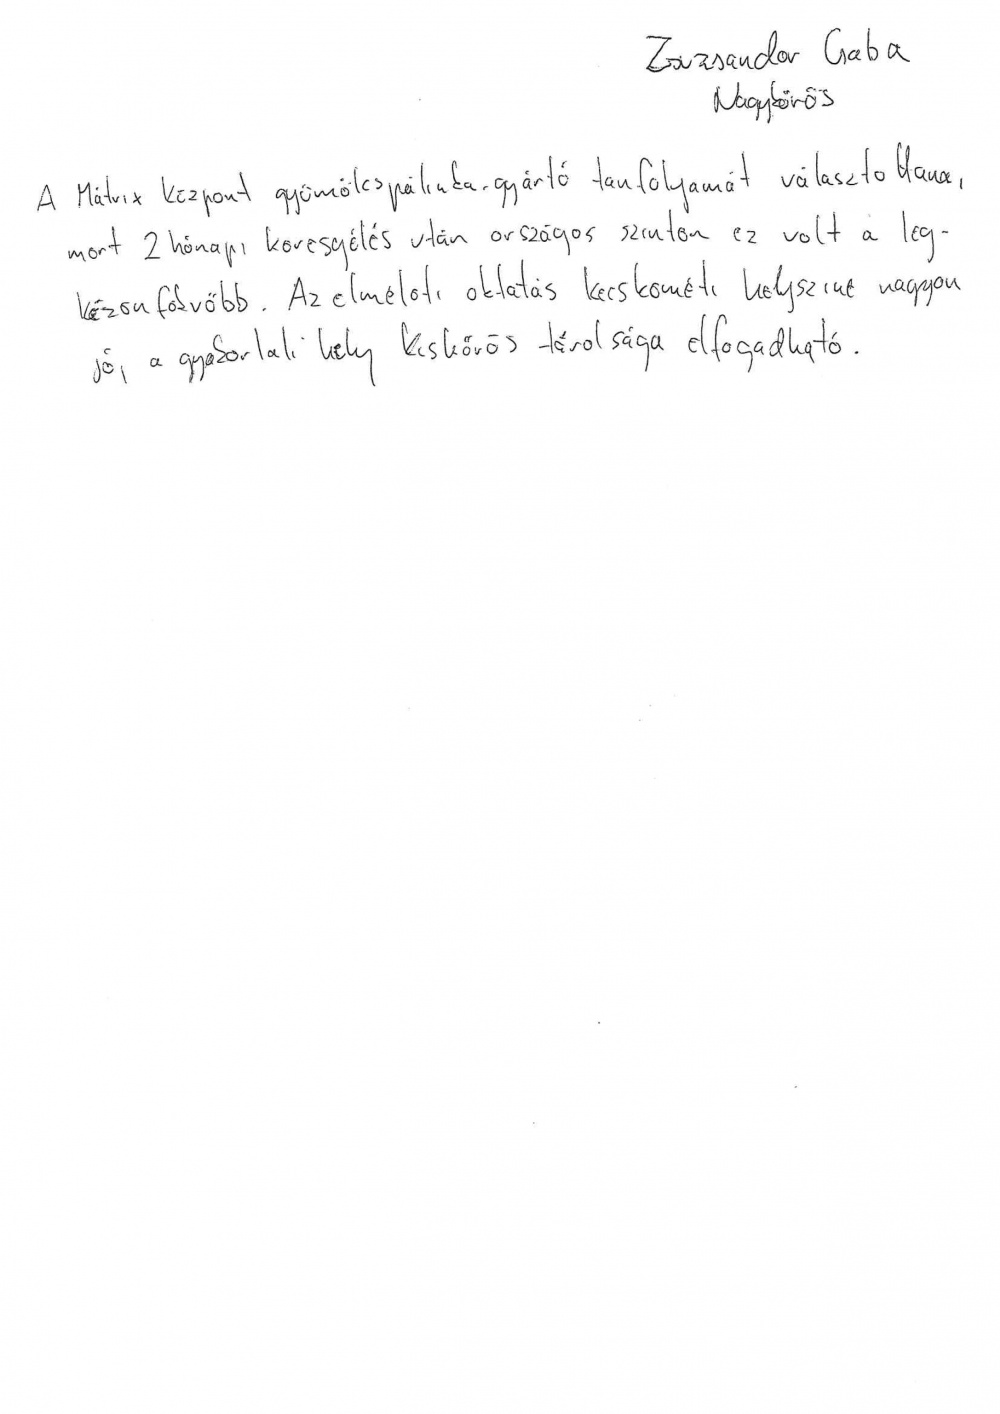 Csaba
Nagykőrös
A Mátrix központ gyümölcspálinka-gyártó tanfolyamát választottam,
mert 2 hónapi keresgélés után országos szinten ez volt a leg-
kézenfekvőbb. Az elméleti oktatás kecskeméti helyszíne nagyon
jó, a gyakorlati hely Kiskőrös távolsága elfogadható.